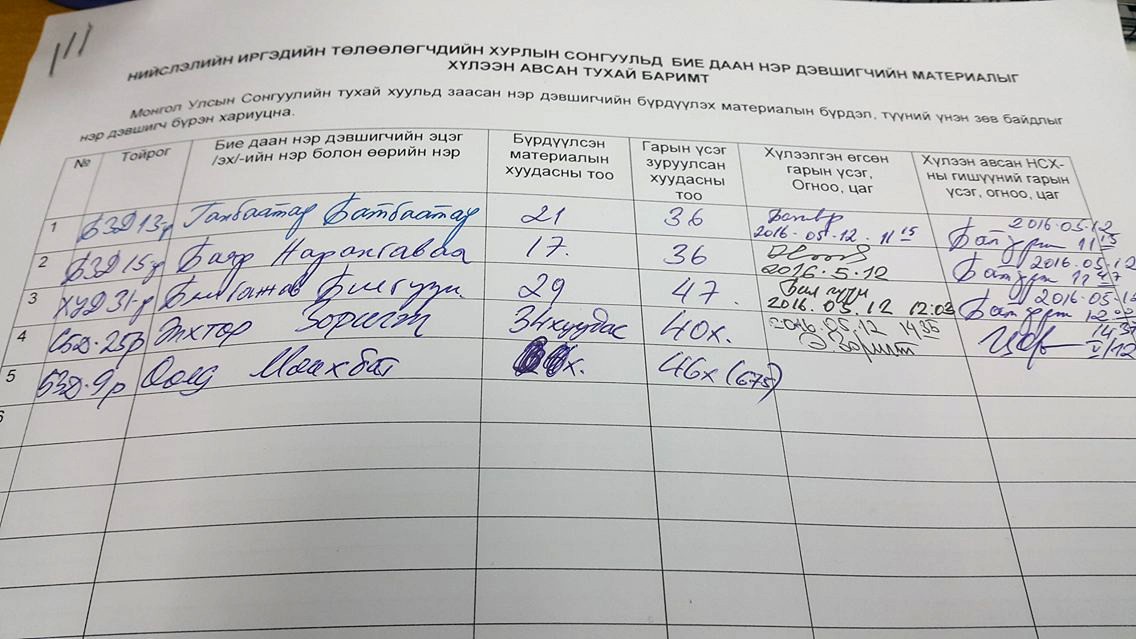 НИЙСЛЭЛИЙН ИРГЭДИЙН ТӨЛӨӨЛӨГЧДИЙН ХУРЛЫН СОНГУУЛЬД БИЕ ДААН НЭР ДЭВШИГЧИЙН МАТЕРИАЛЫГ
ХҮЛЭЭН АВСАН ТУХАЙ БАРИМТ
Монгол Улсын Сонгуулийн тухай хуульд заасан нэр дэвшигчийн бүрдүүлэх материалын бүрдэл, түүний үнэн зөв байдлыг
нэр дэвшигч бүрэн хариуцна.
№ Тойрог Бие даан нэр дэвшигчийн эцэг /эх/-ийн нэр болон өөрийн нэр Бүрдүүлсэн материалын хуудасны тоо Гарын үсэг зуруулсан хуудасны тоо Хүлээлгэн өгсөн гарын үсэг, Огноо, цаг Хүлээн авсан НСХ-ны гишүүний гарын үсэг, огноо, цаг
1 БЗД 13-р Батбаатар 21 36 2016.05.12. 11 15 2016.05.12 11 15
2 БЗД 15-р Баяр Нарангаваа 17. 36 2016.5.12 2016.05.12 11 47
3 ХУД 31-р Билгүүн 29 47. Билгүүн 2016.05.12 12:03 2016.05.12
4 СБД.25р Энхтөр Зоригт 34хуудас 40х. 2016.05.12 14 35 Э.Зоригт 14 35 V/12
5 БЗД.9р Мөнхбат х. 46х (675)
6